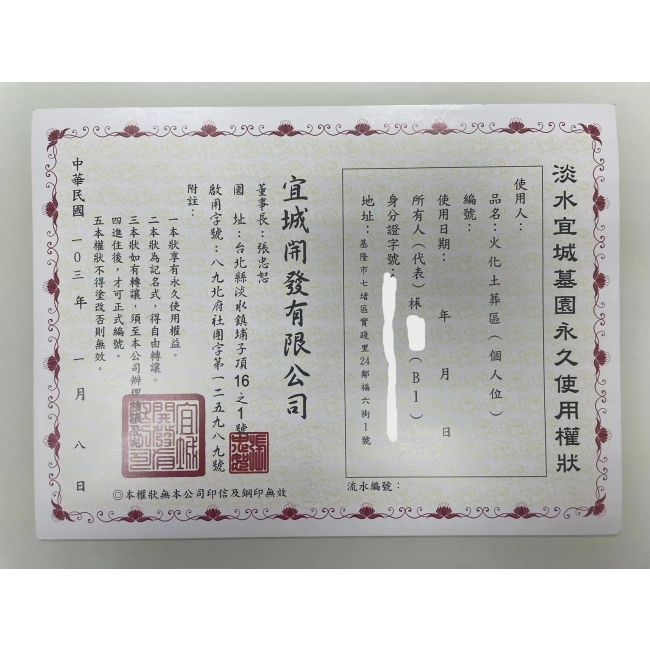 淡水宜城墓園永久使用權狀
使用人：
品名：火化土葬區（個人位）
編號：
使用日期： 年 月 日
所有人（代表）林 （B1）
身分證字號：
地址：基隆市七堵區實踐里24鄰福六街1號
流水編號：
宜城開發有限公司
董事長：張忠恕
園 址：台北縣淡水鎮埔子頂16之1號
啟用字號：八九北府社團字第一二五九八九號
附註：
一本狀享有永久使用權益。
二本狀為記名式，得自由轉讓。
三本狀如有轉讓，須至本公司辦理
四進住後，才可正式編號。
五本權狀不得塗改否則無效。
中華民國 一0三 年 一 月 八 日
◎本權狀無本公司印信及鋼印無效
宜城開發有限公司